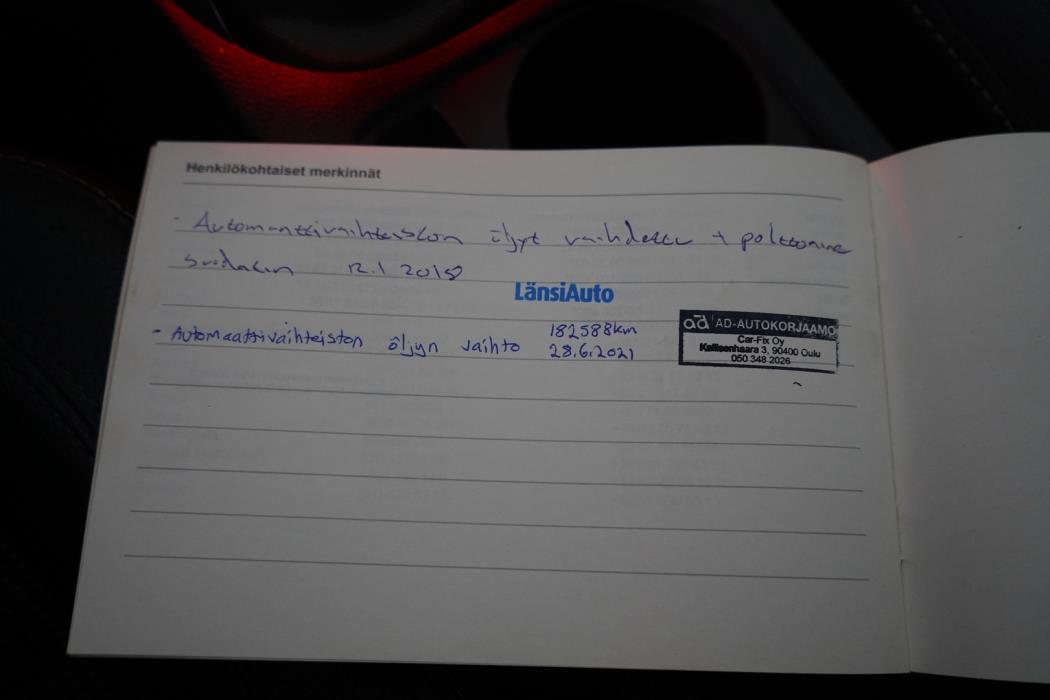 Henkilökohtaiset merkinnät
- Automaattivaihteiston öljyt vaihdettu + polttoaine
suodatin 12.1 2018
LänsiAuto
- Automaattivaihteiston öljyn vaihto 182588km
28.6.2021
ad AD-AUTOKORJAAMO
Car-Fix Oy
Kallisenhaara 3, 90400 Oulu
050 348 2026